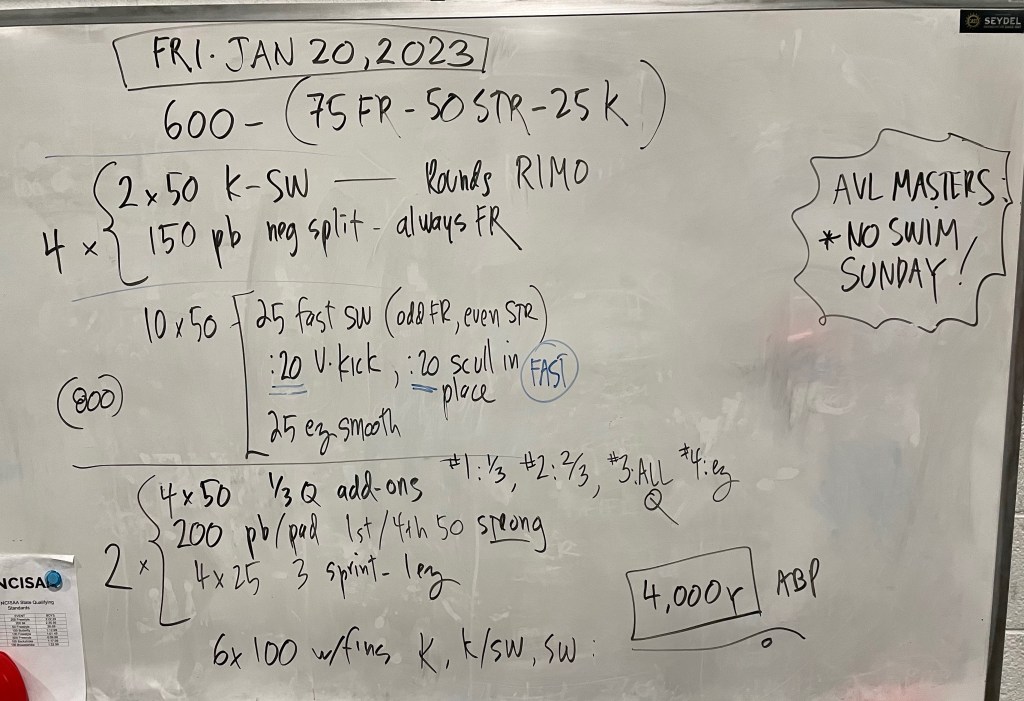 SEYDEL
FRI. JAN 20, 2023
600 - (75 FR - 50 STR - 25 K)
4 x { 2 x 50 K-SW — Rounds RIMO
150 pb neg split - always FR
AVL MASTERS
* NO SWIM
SUNDAY!
10 x 50 - [ 25 fast sw (odd FR, even STR)
:20 V. kick, :20 scull in place FAST
25 ez smooth
(800)
2 x { 4 x 50 1/3 Q add-ons #1: 1/3, #2: 2/3, #3: ALL Q #4: ez
200 pb/pad 1st/4th 50 strong
4 x 25 3 sprint - 1 ez
6 x 100 w/fins K, K/SW, SW :
4,000 Y ABP
NCISAA
NCISAA State Qualifying
Standards